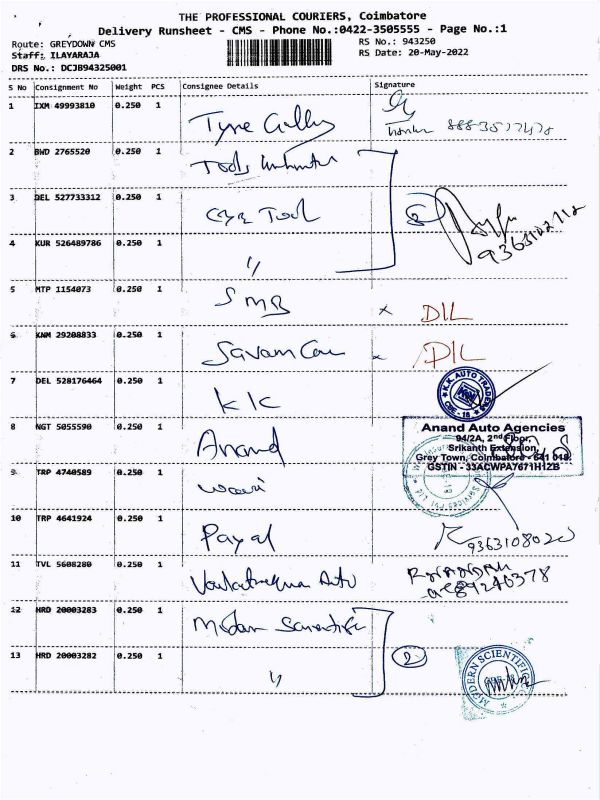 THE PROFESSIONAL COURIERS, Coimbatore
Delivery Runsheet - CMS - Phone No.:0422-3505555 - Page No.:1
Route: GREYDOWN CMS
RS No.: 943250
Staff: ILAYARAJA
RS Date: 20-May-2022
DRS No.: DCJB94325001
S No Consignment No Weight PCS Consignee Details Signature
1 IXM 49993810 0.250 1
2 BWD 2765520 0.250 1 Tools
3 DEL 527733312 0.250 1 Tool 2
9363102112
4 KUR 526489786 0.250 1 "
5 MTP 1154073 0.250 1 SMB x DIL
6 KNM 29208833 0.250 1 DIL
7 DEL 528176464 0.250 1 KK
K.K. AUTO TRADERS
CBE - 18
8 NGT 5055590 0.250 1 Anand
Anand Auto Agencies
94/2A, 2nd Floor,
Srikanth Extension,
Grey Town, Coimbatore - 641 018.
GSTIN - 33ACWPA7671H1ZB
9 TRP 4740589 0.250 1
Services Pvt Ltd
10 TRP 4641924 0.250 1 Payal 9363108020
11 TVL 5608280 0.250 1 Auto
12 HRD 20003283 0.250 1 Modern Scientific
13 HRD 20003282 0.250 1 " 2
MODERN SCIENTIFIC